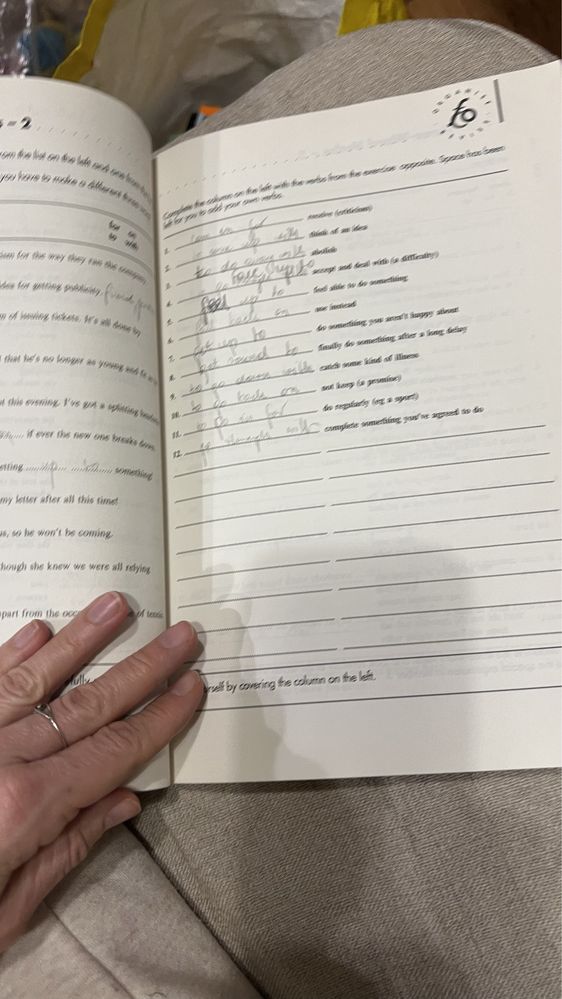 - 2
om the list on the left and one from the
you have to make a different three
for on
to with
sm for the way they ran the company
idea for getting publicity.
m of issuing tickets. It's all done by
that he's no longer as young and fit as
at this evening. I've got a splitting
if ever the new one breaks down
etting ...up... ...to... something
my letter after all this time!
us, so he won't be coming.
hough she knew we were all relying
part from the of tennis
fully
ORGANISER
Complete the column on the left with the verbs from the exercise opposite. Space has been
left for you to add your own verbs.
1. for receive (criticism)
2. up with think of an idea
3. to do away with abolish
4. to accept and deal with (a difficulty)
5. feel up to feel able to do something
6. back on use instead
7. up to do something you aren't happy about
8. get round to finally do something after a long delay
9. to go down with catch some kind of illness
10. to go back on not keep (a promise)
11. to go in for do regularly (eg a sport)
12. go through with complete something you've agreed to do
rself by covering the column on the left.